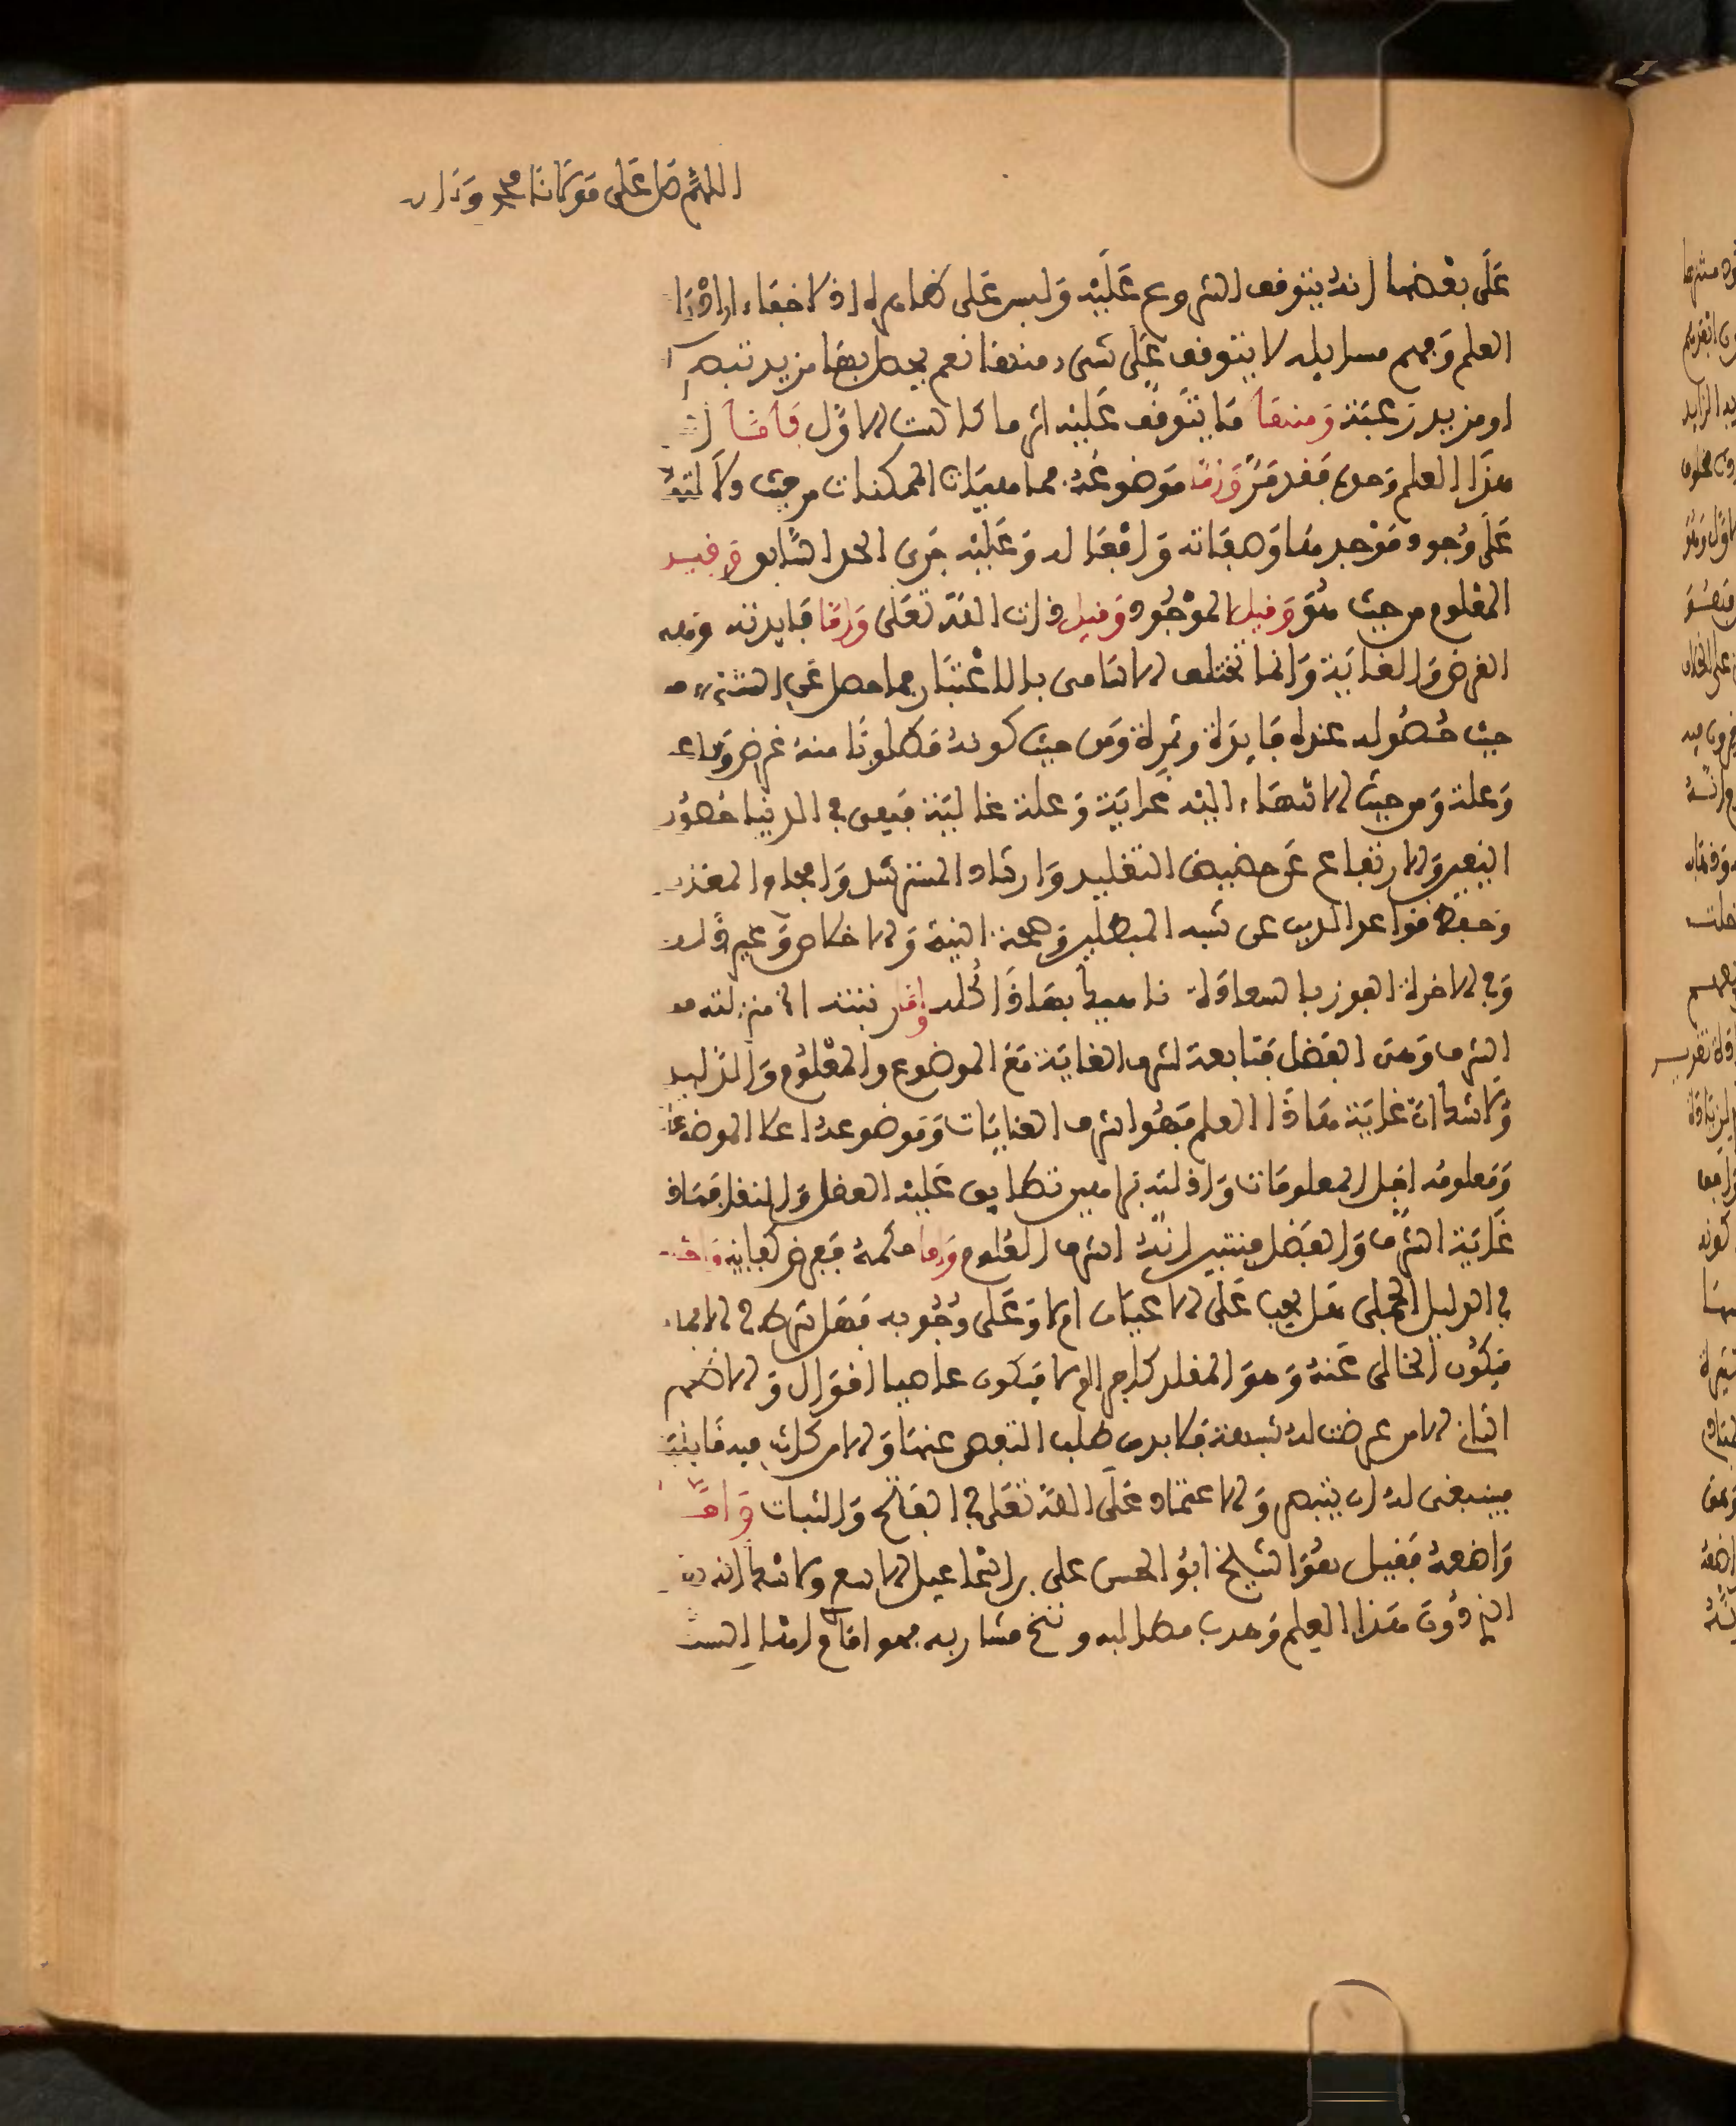 اللهم صل على مولانا محمد وءال
على بعضها انه يتوقف الشروع عليه وليس على ظاهره اذ لا خفاء ان ادراك
العلم وفهم مسايله لا يتوقف على شيء منها نعم يحصل بها مزيد تبصر
او مزيد رغبة ومنها ما يتوقف عليه اثر ما كالست الاول فاما
هذا العلم وحده فقد مر واما موضوعه فماهيات الممكنات من حيث دلالتها
على وجود موجدها وصفاته وافعاله وعليه جرى الحد السابق وقيل
المعلوم من حيث هو وقيل الموجود وقيل ذات الله تعلى واما فايدته وهي
الغرض والغاية وانما تختلف الاسامي بالاعتبار فما حصل عن الشيء من
حيث حصوله عنه فايدة وثمرة ومن حيث كونه مطلوبا منه غرض وباعث
وعلة ومن حيث الانتهاء اليه غاية وعلة غايية فهي في الدنيا حصول
اليقين والارتفاع عن حضيض التقليد وارشاد المسترشد وافحام المعاند
وحفظ قواعد الدين عن شبه المبطلين وصحة النية والاخلاص وغير ذلك
وفي الاخرة الفوز بالسعادة ناهيك بهذا كله واما رتبته اي منزلته من
الشرف وهي الفضل فتابعة لشرف الغاية مع الموضوع والمعلوم والدليل
ولا شك ان غاية هاذا العلم فهو اشرف الغايات وموضوعه اعلا الموضوعات
ومعلومه اجل المعلومات وادلته براهين تطابق عليه العقل والنقل فهاذه
غاية الشرف والفضل فتبين انه اشرف العلوم واما حكمه ففرض كفاية
في الدليل الجملي هل يجب على الاعيان ام لا وعلى وجوبه فهل شرط في الايمان
فيكون الخالي عنه وهو المقلد كافرا ام لا فيكون عاصيا اقوال
الثاني الا من عرضت له شبهة فلا بد من طلب التفصي عنها والا من
فينبغي له ان يثبتهم والاعتماد على الله تعلى في الفتح والثبات واما
واضعه فقيل هو الشيخ ابو الحسن علي بن اسماعيل الاشعري ولا شك انه
الذي دون هذا العلم وهذب مطالبه ونقح مشاربه فهو امام اهل السنة